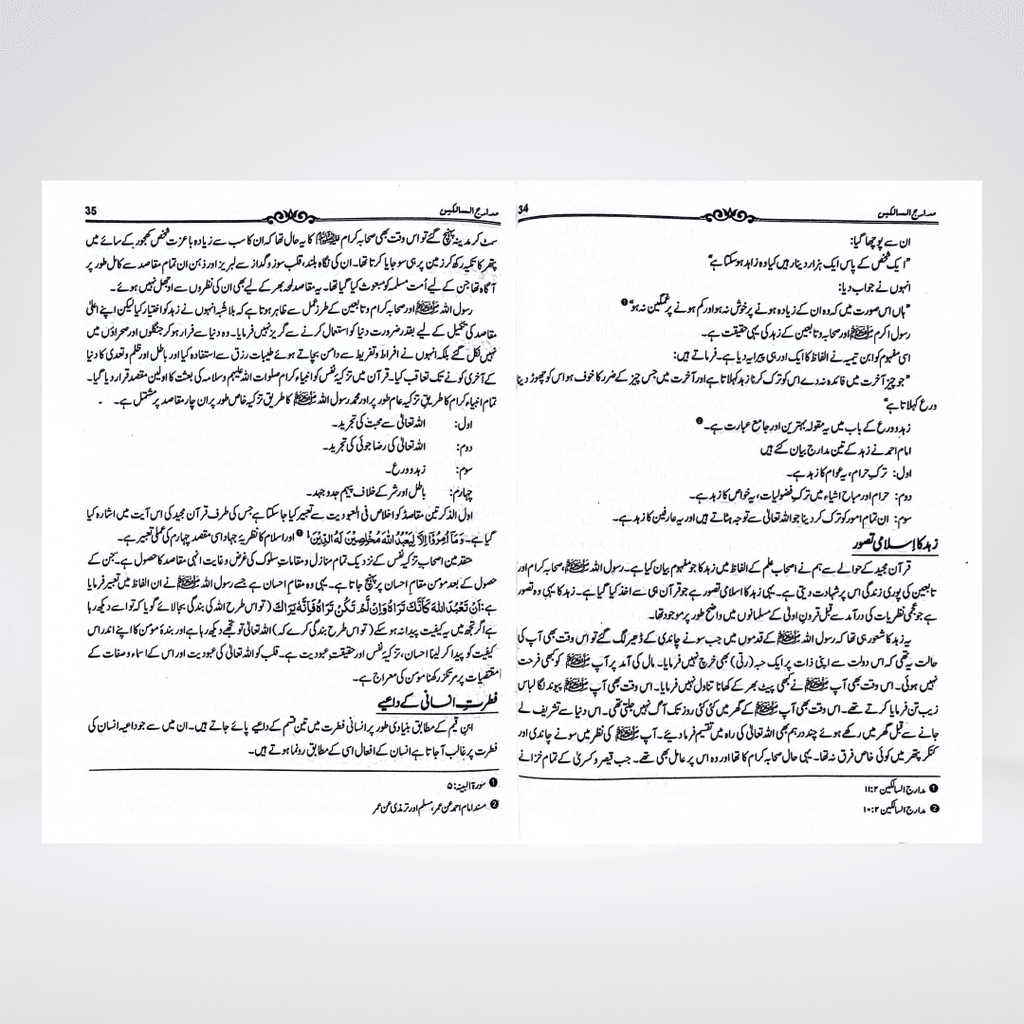 مدارج السالکین 34
ان سے پوچھا گیا:
”ایک شخص کے پاس ایک ہزار دینار ہیں کیا وہ زاہد ہو سکتا ہے“
انہوں نے جواب دیا:
”ہاں اس صورت میں کہ وہ ان کے زیادہ ہونے پر خوش نہ ہو اور کم ہونے پر غمگین نہ ہو“ ❶
رسول اکرم ﷺ اور صحابہ و تابعین کے زہد کی یہی حقیقت ہے۔
اسی مفہوم کو ابن تیمیہ نے الفاظ کا ایک اور ہی پیرایہ دیا ہے۔ فرماتے ہیں:
”جو چیز آخرت میں فائدہ نہ دے اس کو ترک کرنا زہد کہلاتا ہے اور آخرت میں جس چیز کے ضرر کا خوف ہو اس کو چھوڑ دینا
ورع کہلاتا ہے“
زہد و ورع کے باب میں یہ مقولہ بہترین اور جامع عبارت ہے۔ ❷
امام احمد نے زہد کے تین مدارج بیان کئے ہیں
اول: ترکِ حرام، یہ عوام کا زہد ہے۔
دوم: حرام اور مباح اشیاء میں ترکِ فضولیات، یہ خواص کا زہد ہے۔
سوم: ان تمام امور کو ترک کر دینا جو اللہ تعالیٰ سے توجہ ہٹاتے ہیں اور یہ عارفین کا زہد ہے۔
زہد کا اسلامی تصور
قرآن مجید کے حوالے سے ہم نے اصحاب علم کے الفاظ میں زہد کا جو مفہوم بیان کیا ہے۔ رسول اللہ ﷺ، صحابہ کرام اور
تابعین کی پوری زندگی اس پر شہادت دیتی ہے۔ یہی زہد کا اسلامی تصور ہے جو قرآن ہی سے اخذ کیا گیا ہے۔ زہد کا یہی وہ تصور
ہے جو عجمی نظریات کی درآمد سے قبل قرونِ اولیٰ کے مسلمانوں میں واضح طور پر موجود تھا۔
یہ زہد کا شعور ہی تھا کہ رسول اللہ ﷺ کے قدموں میں جب سونے چاندی کے ڈھیر لگ گئے تو اس وقت بھی آپ کی
حالت یہ تھی کہ اس دولت سے اپنی ذات پر ایک حبہ (رتی) بھی خرچ نہیں فرمایا۔ مال کی آمد پر آپ ﷺ کو کبھی فرحت
نہیں ہوئی۔ اس وقت بھی آپ ﷺ نے کبھی پیٹ بھر کے کھانا تناول نہیں فرمایا۔ اس وقت بھی آپ ﷺ پیوند لگا لباس
زیب تن فرمایا کرتے تھے۔ اس وقت بھی آپ ﷺ کے گھر میں کئی کئی روز تک آگ نہیں جلتی تھی۔ اس دنیا سے تشریف لے
جانے سے قبل گھر میں رکھے ہوئے چند درہم بھی اللہ تعالیٰ کی راہ میں تقسیم فرما دیئے۔ آپ ﷺ کی نظر میں سونے چاندی اور
کنکر پتھر میں کوئی خاص فرق نہ تھا۔ یہی حال صحابہ کرام کا تھا اور وہ اس پر عامل بھی تھے۔ جب قیصر و کسریٰ کے تمام خزانے
❶ مدارج السالکین ۱۱:۲
❷ مدارج السالکین ۱۰:۲
مدارج السالکین 35
سمٹ کر مدینہ پہنچ گئے تو اس وقت بھی صحابہ کرام کا یہ حال تھا کہ ان کا سب سے زیادہ باعزت شخص کھجور کے سائے میں
پتھر کا تکیہ رکھ کر زمین پر ہی سو جایا کرتا تھا۔ ان کی نگاہ بلند، قلب سوز و گداز سے لبریز اور ذہن ان تمام مقاصد سے کامل طور پر
آگاہ تھا جن کے لیے اُمت مسلمہ کو مبعوث کیا گیا تھا۔ یہ مقاصد لمحہ بھر کے لیے بھی ان کی نظروں سے اوجھل نہیں ہوئے۔
رسول اللہ ﷺ اور صحابہ کرام و تابعین کے طرز عمل سے ظاہر ہوتا ہے کہ بلاشبہ انہوں نے زہد کو اختیار کیا لیکن اپنے اعلیٰ
مقاصد کی تکمیل کے لیے بقدر ضرورت دنیا کو استعمال کرنے سے گریز نہیں فرمایا۔ وہ دنیا سے فرار ہو کر جنگلوں اور صحراؤں میں
نہیں نکل گئے بلکہ انہوں نے افراط و تفریط سے دامن بچاتے ہوئے طیبات رزق سے استفادہ کیا اور باطل اور ظلم و تعدی کا دنیا
کے آخری کونے تک تعاقب کیا۔ قرآن میں تزکیہ نفس کو انبیاء کرام صلوات اللہ علیہم وسلامہ کی بعثت کا اولین مقصد قرار دیا گیا۔
تمام انبیاء کرام کا طریق تزکیہ عام طور پر اور محمد رسول اللہ ﷺ کا طریق تزکیہ خاص طور پر ان چار مقاصد پر مشتمل ہے۔
اول: اللہ تعالیٰ سے محبت کی تجرید۔
دوم: اللہ تعالیٰ کی رضا جوئی کی تجرید۔
سوم: زہد و ورع۔
چہارم: باطل اور شر کے خلاف پیہم جد و جہد۔
اول الذکر تین مقاصد کو اخلاص فی العبودیت سے تعبیر کیا جا سکتا ہے جس کی طرف قرآن مجید کی اس آیت میں اشارہ کیا
گیا ہے۔ وَمَا أُمِرُوْا اِلَّا لِيَعْبُدُ اللهَ مُخْلِصِيْنَ لَهُ الدِّيْنَ ❶ اور اسلام کا نظریۂ جہاد اسی مقصد چہارم کی عملی تعبیر ہے۔
متقدمین اصحاب تزکیہ نفس کے نزدیک تمام منازل و مقامات سلوک کی غرض و غایت انہی مقاصد کا حصول ہے۔ جن کے
حصول کے بعد مؤمن مقامِ احسان پر پہنچ جاتا ہے۔ یہی وہ مقام احسان ہے جسے رسول اللہ ﷺ نے ان الفاظ میں تعبیر فرمایا
ہے: اَنْ تَعْبُدَ اللهَ كَاَنَّكَ تَرَاهُ وَاِنْ لَّمْ تَكُنْ تَرَاهُ فَاِنَّهُ يَرَاكَ (تو اس طرح اللہ کی بندگی بجا لائے گویا کہ تو اسے دیکھ رہا
ہے اگر تجھ میں یہ کیفیت پیدا نہ ہو سکے (تو اس طرح بندگی کرے کہ) اللہ تعالیٰ تو تجھے دیکھ رہا ہے اور بندۂ مؤمن کا اپنے اندر اس
کیفیت کو پیدا کر لینا احسان، تزکیہ نفس اور حقیقت عبودیت ہے۔ قلب کو اللہ تعالیٰ کی عبودیت اور اس کے اسماء و صفات کے
مقتضیات پر مرتکز رکھنا مؤمن کی معراج ہے۔
فطرت انسانی کے داعیے
ابن قیم کے مطابق بنیادی طور پر انسانی فطرت میں تین قسم کے داعیے پائے جاتے ہیں۔ ان میں سے جو داعیہ انسان کی
فطرت پر غالب آ جاتا ہے انسان کے افعال اسی کے مطابق رونما ہوتے ہیں۔
❶ سورۃ البینہ: ۵
❷ مسند امام احمد عن عمر، مسلم اور ترمذی عن عمر